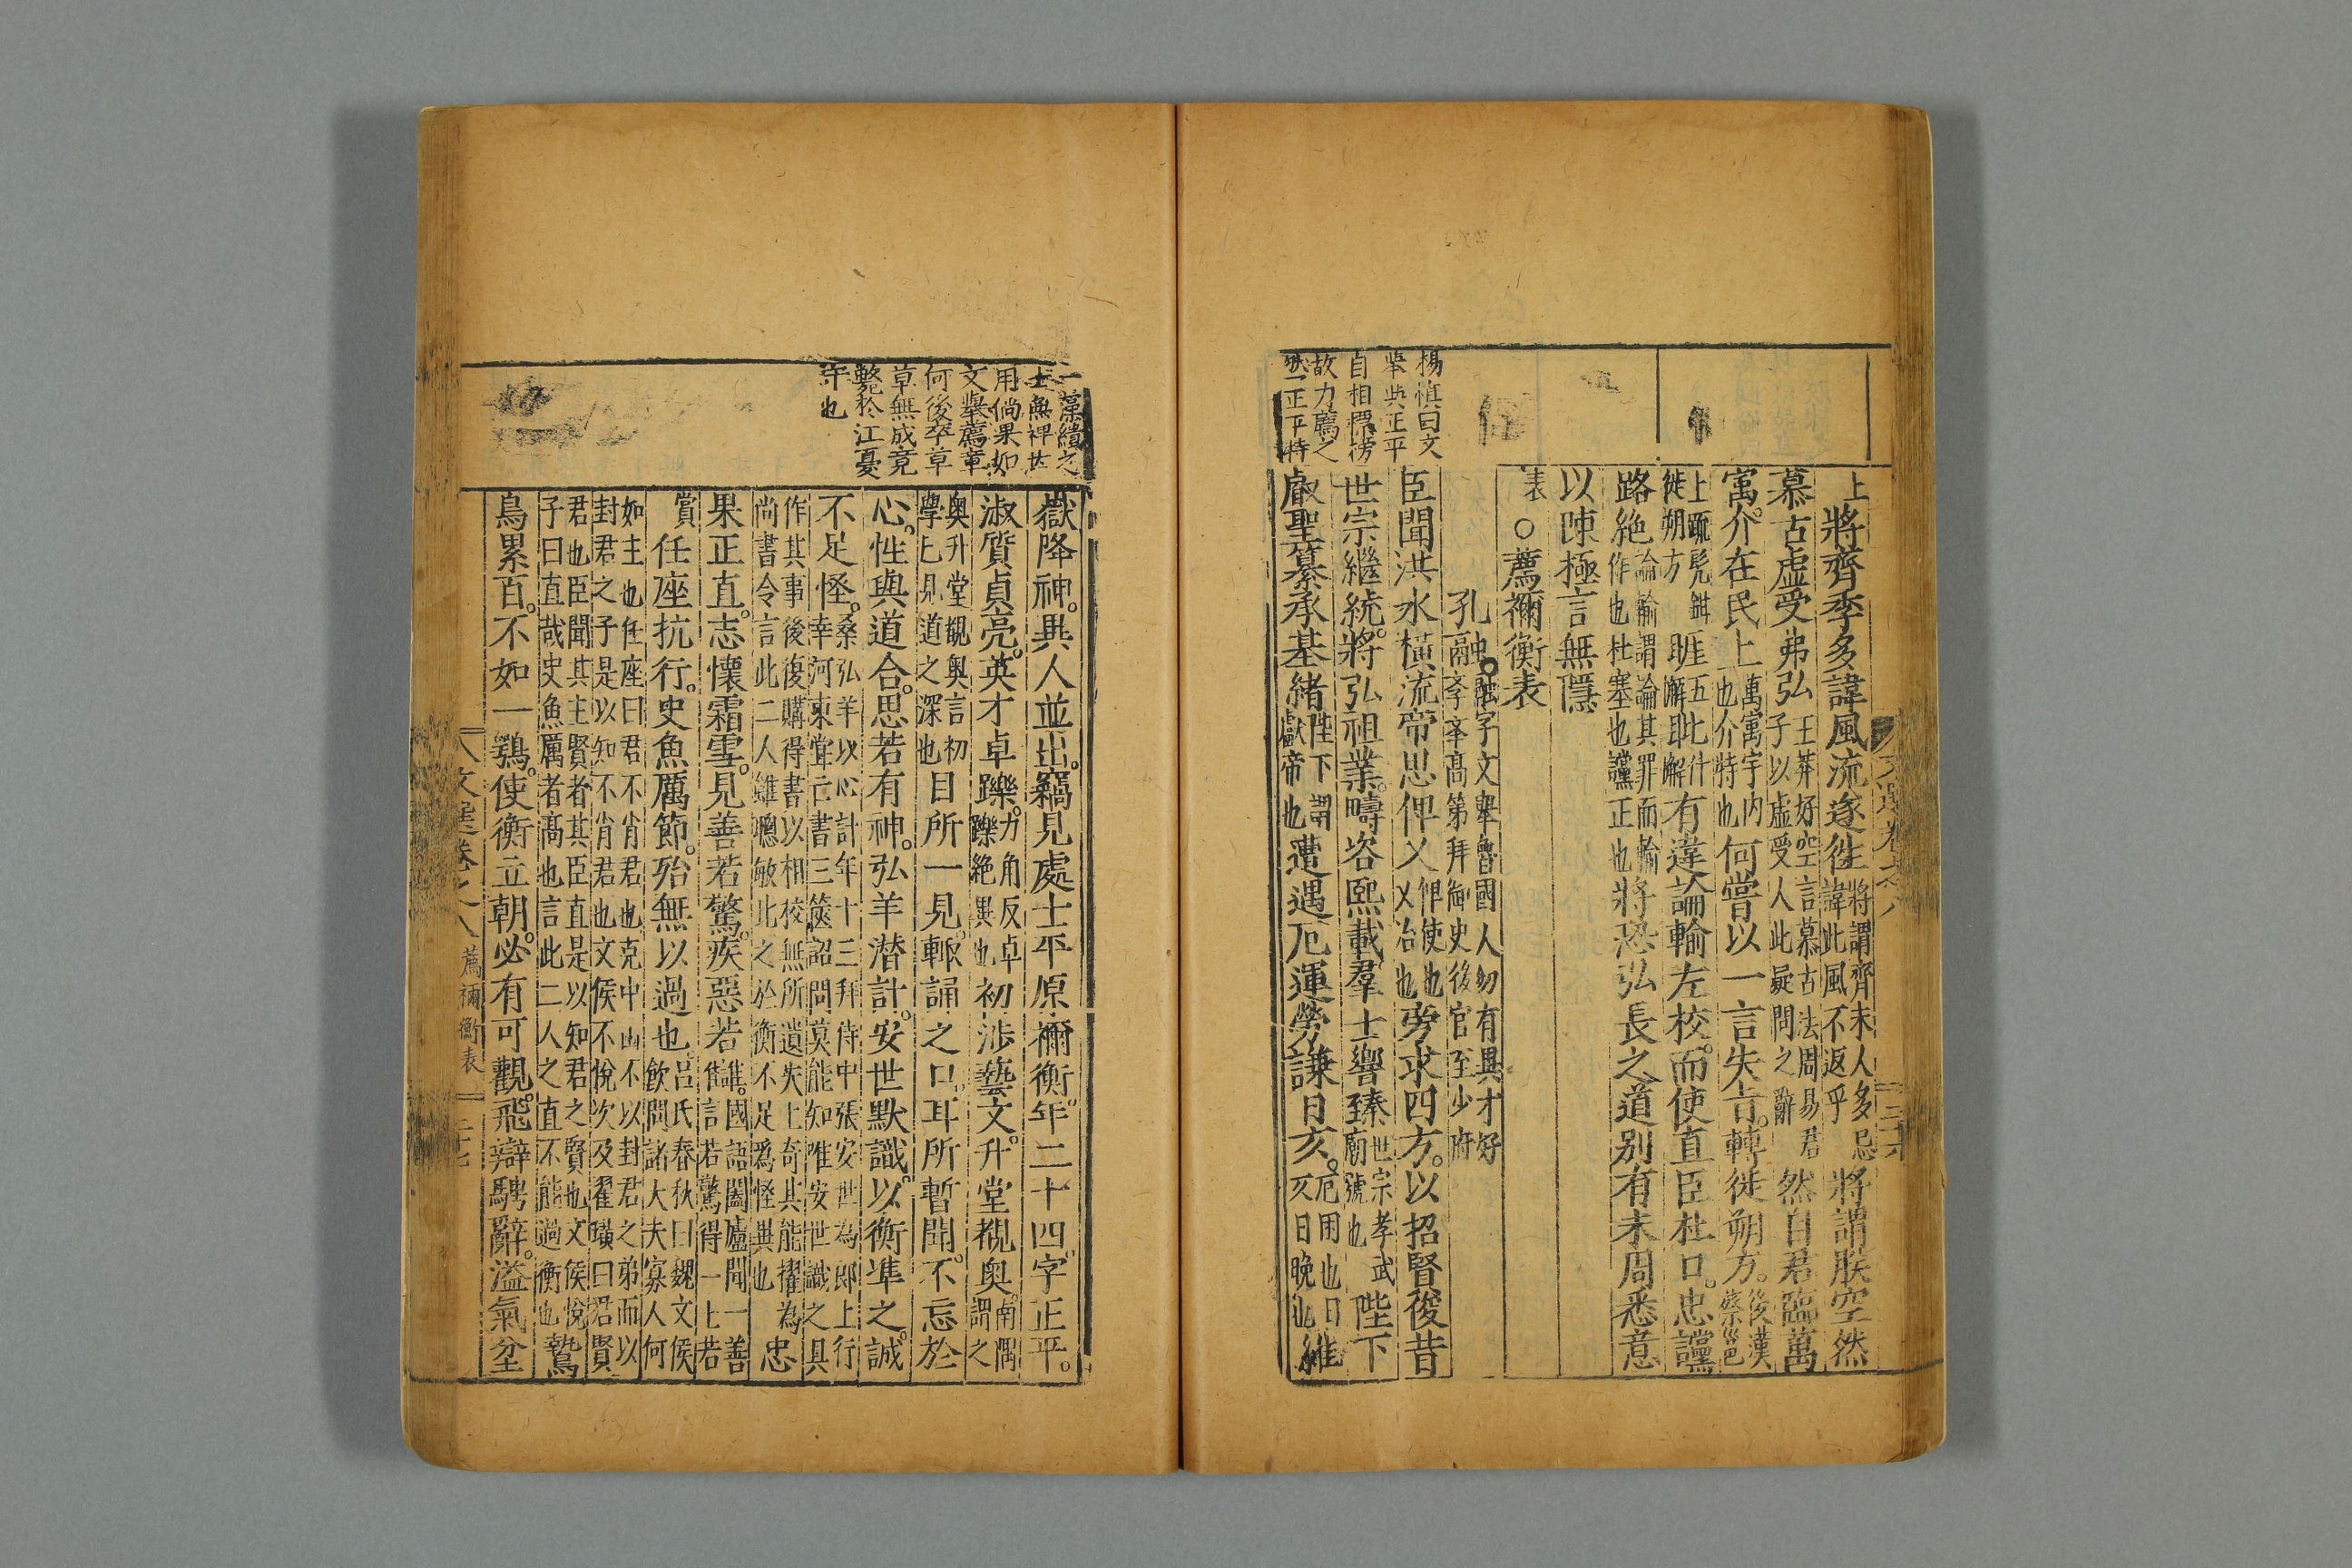 上將齊季多諱風流遂徃將謂齊末人多忌諱此風不返乎將謂朕空然
慕古虛受弗弘王莽好空言慕古法周易君子以虛受人此疑問之辭然自君臨萬
寓介在民上萬寓宇内也介特也何嘗以一言失㫖轉徙朔方後漢蔡邕
上疏髡鉗徙朔方睚五比什懈睚懈有違論輸左校而使直臣杜口忠讜
路絶論輸謂論其罪而輸作也杜塞也讜正也將恐弘長之道别有未周悉意
以陳極言無隱
表○薦禰衡表
孔融融字文舉魯國人幼有異才好孝高第拜御史後官至少府
臣聞洪水橫流帝思俾乂俾使也乂治也旁求四方以招賢俊昔
世宗繼統將弘祖業疇咨熙載羣士響臻世宗孝武廟號也陛下
叡聖纂承基緒陛下謂獻帝也遭遇厄運勞謙日昃厄困也日昃日晚也維
楊慎曰文
舉與正平
自相標榜
故力薦之
然正平特
嶽降神異人並出竊見處士平原禰衡年二十四字正平
淑質貞亮英才卓躒力角反卓躒絶異也初涉藝文升堂覩奥南隅謂之
奥升堂覩奥言初學已見道之深也目所一見輒誦之口耳所暫聞不忘於
心性與道合思若有神弘羊潜計安世默識以衡準之誠
不足怪桑弘羊以心計年十三拜侍中張安世為郎上行幸河東嘗亡書三篋詔問莫能知唯安世識之具
作其事後復購得書以相校無所遺失上奇其能擢為尚書令言此二人雖聰敏此之於衡不足爲怪異也忠
果正直志懷霜雪見善若驚疾惡若讎國語闔廬聞一善若驚得一士若
賞任座抗行史魚厲節殆無以過也吕氏春秋曰魏文侯飲問諸大夫寡人何
如主也任座曰君不肖君也克中山不以封君之弟而以封君之子是以知不肖君也文侯不悅次及翟璜曰君賢
君也臣聞其主賢者其臣直是以知君之賢也文侯悅子曰直哉史魚厲者髙也言此二人之直不能過衡也鷙
鳥累百不如一鶚使衡立朝必有可觀飛辯騁辭溢氣坌
一藻繢之
士無裨世
用倘果如
文舉薦章
何後卒草
草無成竟
斃於江憂
守也
文選卷之八 薦禰衡表 二十七